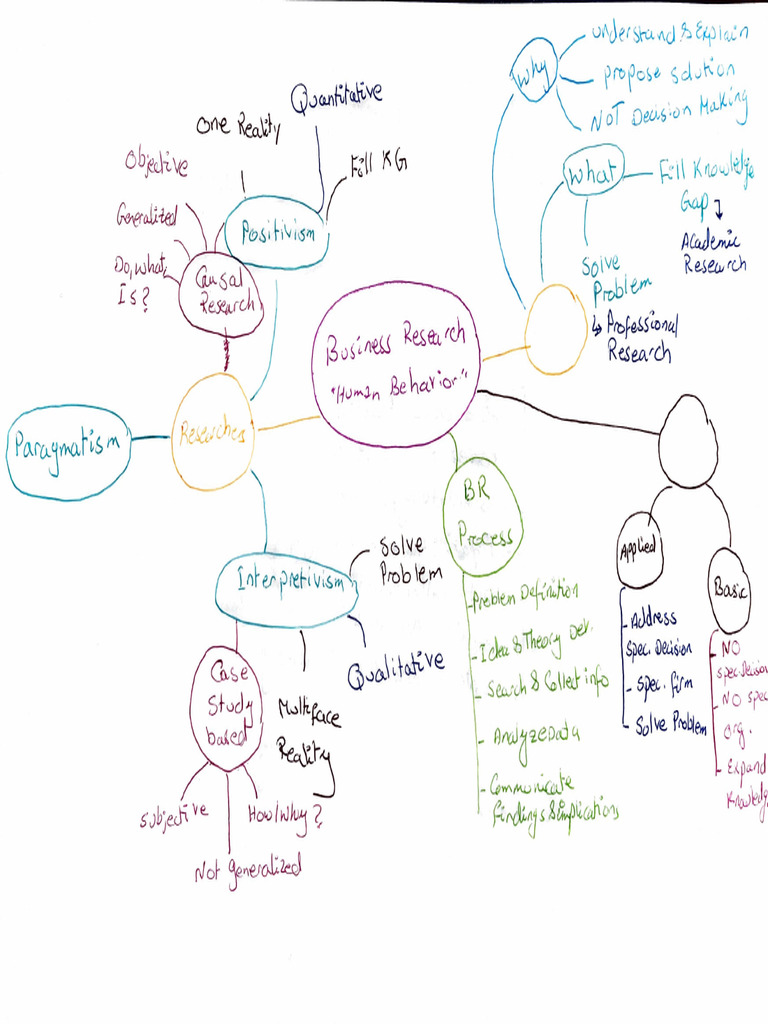 Why
Understand & Explain
Propose Solution
NOT Decision Making
What
Fill Knowledge
Gap
Academic
Research
Solve
Problem
Professional
Research
Quantitative
One Reality
Fill KG
Objective
Generalized
Do, What,
Is?
Positivism
Causal
Research
Business Research
"Human Behavior"
Researches
Paragmatism
BR
Process
-Problem Definition
-Idea & Theory Dev.
-Search & Collect info
- Analyze Data
-Communicate
Findings & Implications
Applied
- Address
Spec. Decision
- Spec. firm
- Solve Problem
Basic
- NO
spec. Decision
- NO spec
org.
- Expand
Knowledge
Interpretivism
Solve
Problem
Qualitative
Multiface
Reality
Case
Study
based
Subjective
How/Why?
Not generalized